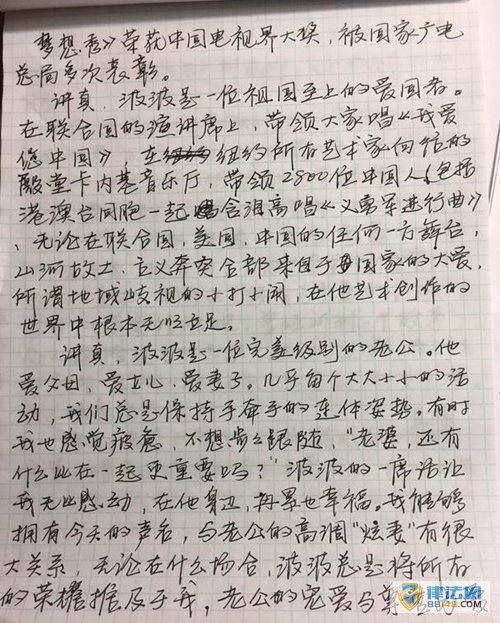 梦想秀》荣获中国电视界大奖，被国家广电
总局多次表彰。
讲真，波波是一位祖国至上的爱国者。
在联合国的演讲席上，带领大家唱《我爱
您中国》，在纽约所有艺术家向往的
殿堂卡内基音乐厅，带领2800位中国人(包括
港澳台同胞一起含泪高唱《义勇军进行曲》
，无论在联合国，美国，中国的任何一方舞台，
山河故土，主义奔突全部来自于国家的大爱，
所谓地域歧视的小打小闹，在他艺术创作的
世界中根本无以立足。
讲真，波波是一位完美级别的老公。他
爱父母，爱女儿，爱妻子。几乎每个大大小小的活
动，我们总是保持手牵手的连体姿势。有时
我也感觉疲惫，不想步步跟随，“老婆，还有
什么比在一起更重要吗？”波波的一席话让
我无比感动，在他身边，再累也幸福。我能够
拥有今天的声名，与老公的高调“炫妻”有很
大关系，无论在什么场合，波波总是将所有
的荣耀推及于我，老公的宠爱与尊
律法网
88148.com